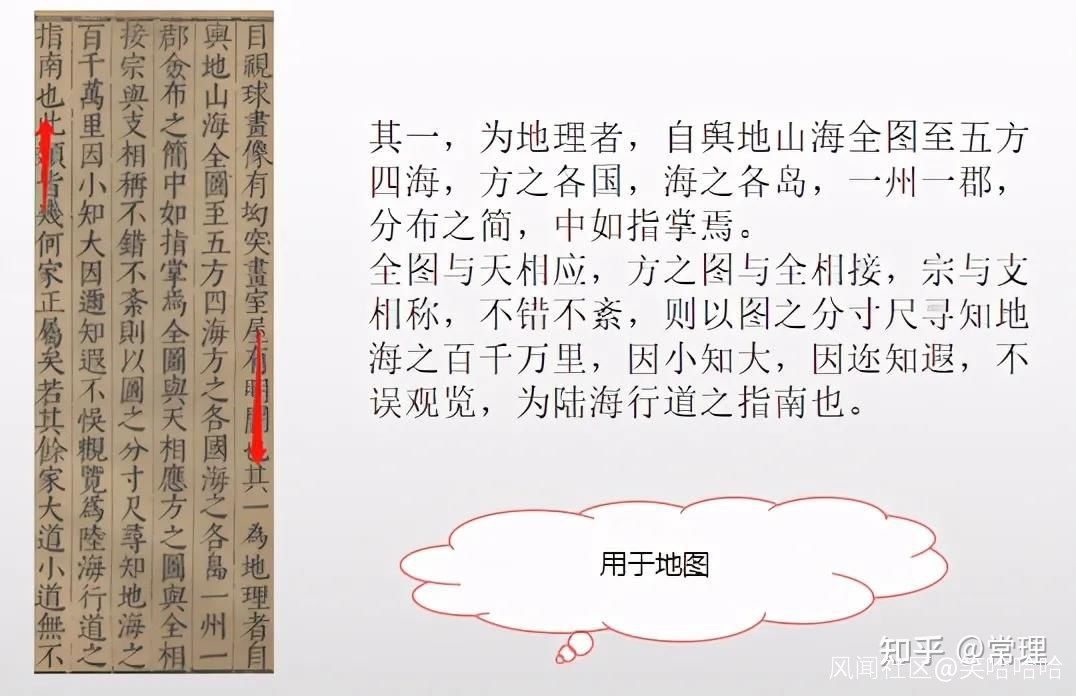 目視球畫像有坳突畫室屋有明闇也其一為地理者自
輿地山海全圖至五方四海方之各國海之各島一州一
郡僉布之簡中如指掌焉全圖與天相應方之圖與全相
接宗與支相稱不錯不紊則以圖之分寸尺尋知地海之
百千萬里因小知大因邇知遐不悞觀覽爲陸海行道之
指南也此類皆幾何家正屬矣若其餘家大道小道無不
其一，为地理者，自舆地山海全图至五方
四海，方之各国，海之各岛，一州一郡，
分布之简，中如指掌焉。
全图与天相应，方之图与全相接，宗与支
相称，不错不紊，则以图之分寸尺寻知地
海之百千万里，因小知大，因迩知遐，不
误观览，为陆海行道之指南也。
用于地图
知乎 @常理
风闻社区@笑哈哈哈哈